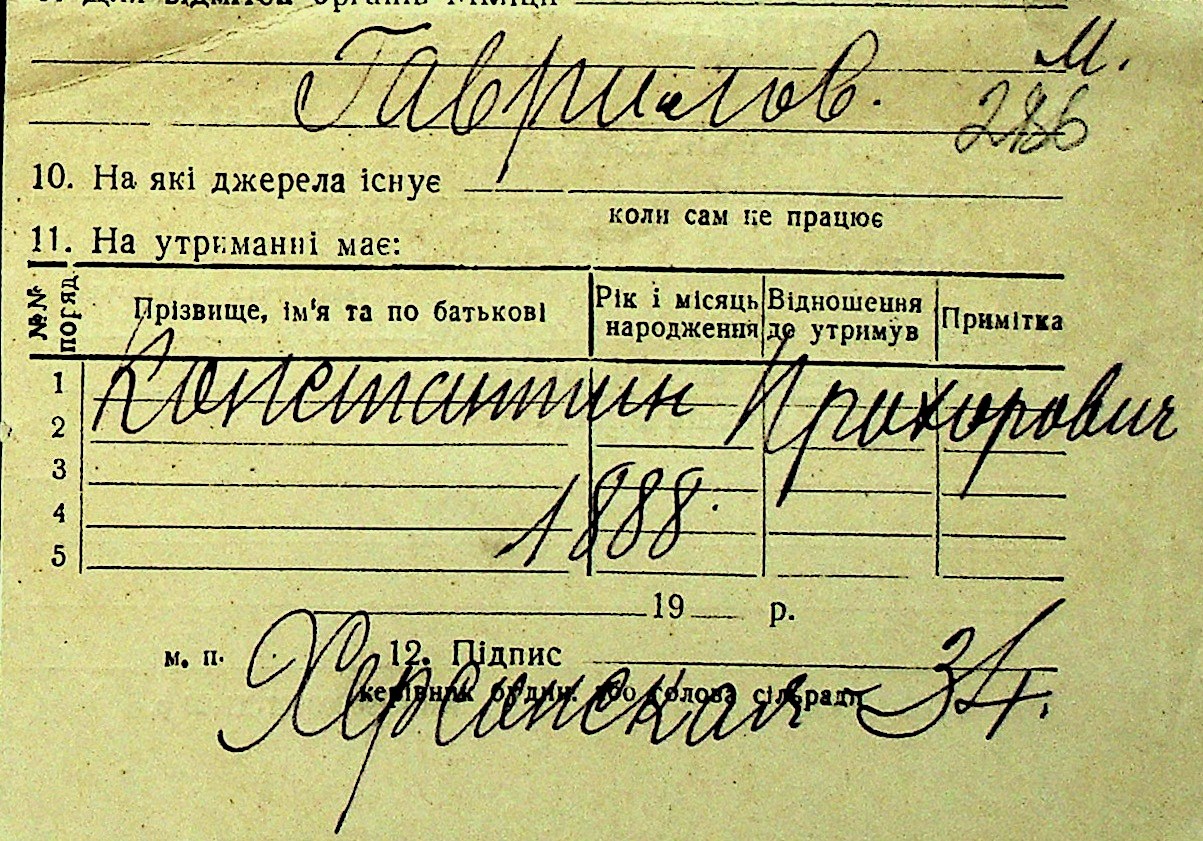 9. Для відміток органів міліції
М.
Гаврилов.
286
10. На які джерела існує
коли сам не працює
11. На утриманні має:
№№ поряд
Прізвище, ім'я та по батькові
Рік і місяць народження
Відношення до утримув
Примітка
1
Константин Прохорович
2
3
4
1888.
5
19 р.
м. п. 12. Підпис
керівник будин. або голова сільради
Херсонская 34.